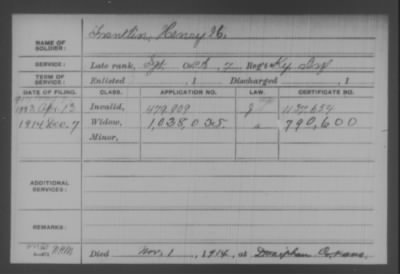 NAME OF SOLDIER: Franklin, Henry H.
SERVICE: Late rank, Sgt. Co. 7 Reg't Ky Inf
TERM OF SERVICE: Enlisted , 1 Discharged , 1
DATE OF FILING. CLASS. APPLICATION NO. LAW. CERTIFICATE NO.
Apr. 13 Invalid, 479.809
1914 Dec. 7 Widow, 1,038,025 " 790,600
Minor,
ADDITIONAL SERVICES:
REMARKS:
Died Nov. 1, 1914, at Doniphan Co, Kans.